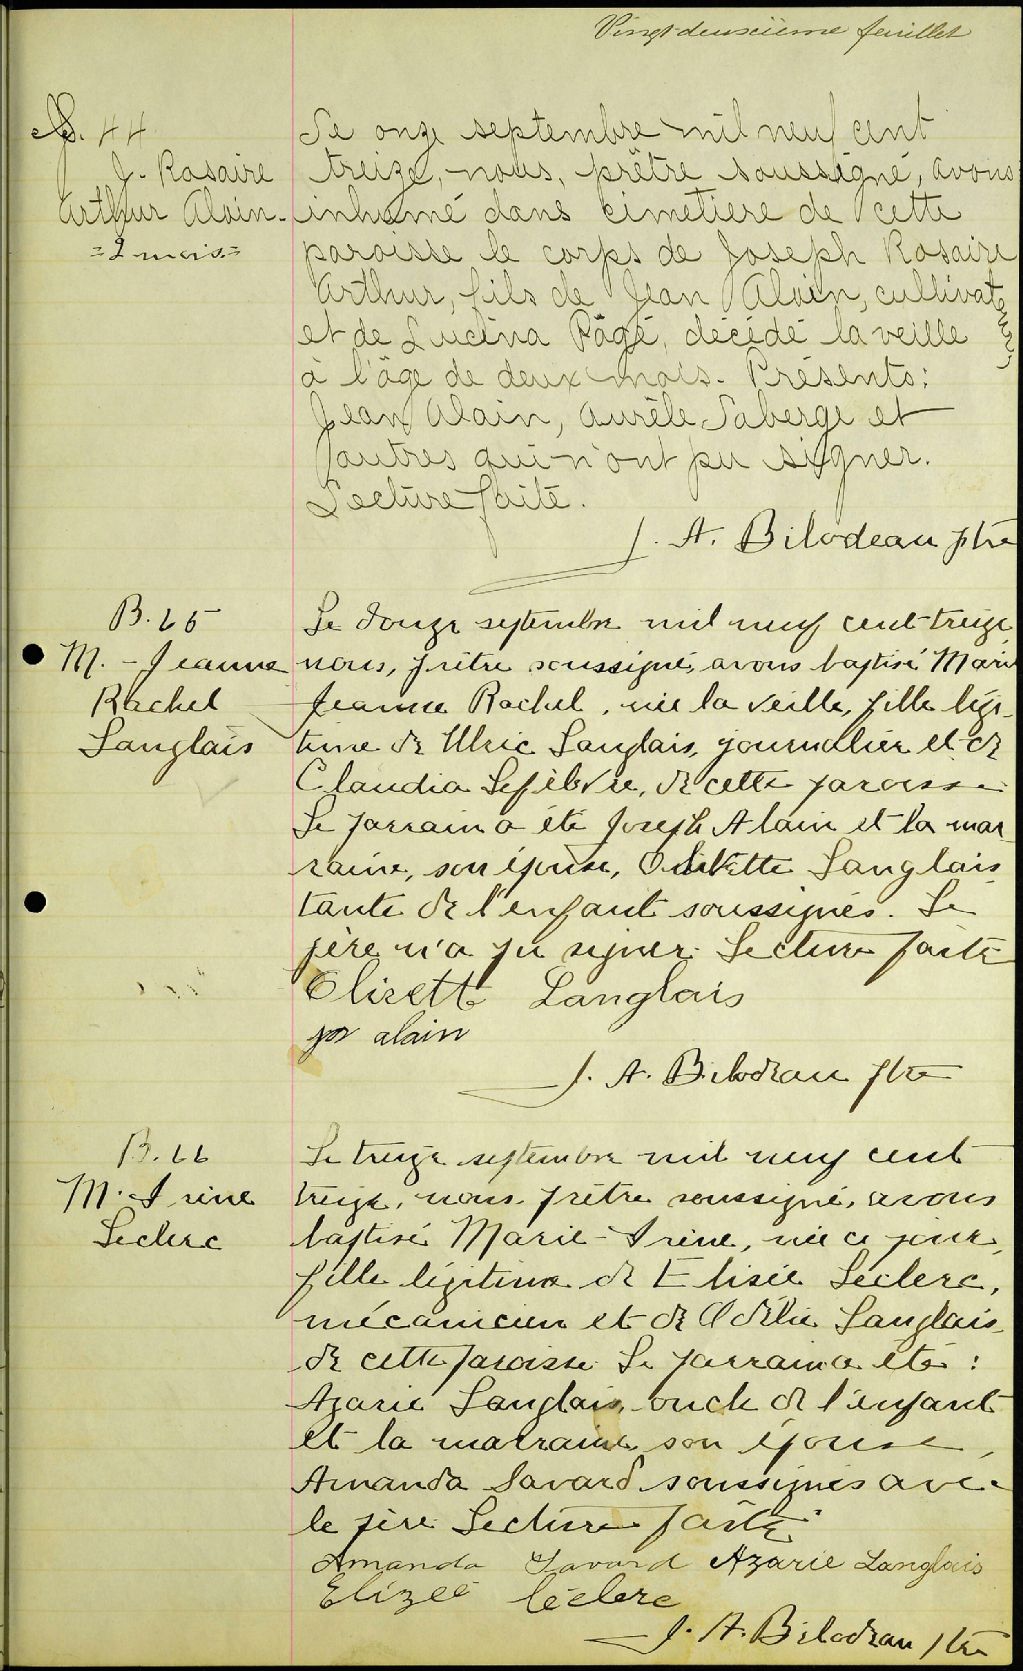 Vingt deuxième feuillet
S. 44
J. Rosaire
Arthur Alain.
= 2 mois =
Le onze septembre mil neuf cent
treize, nous, prêtre soussigné, avons
inhumé dans cimetière de cette
paroisse le corps de Joseph Rosaire
Arthur, fils de Jean Alain, cultivateur
et de Lucina Pâgé, décédé la veille
à l'âge de deux mois. Présents:
Jean Alain, Aurèle Laberge et
autres qui n'ont pu signer.
Lecture faite.
J. A. Bilodeau ptre
B. 65
M. - Jeanne
Rachel
Langlais
Le douze septembre mil neuf cent treize
nous, prêtre soussigné, avons baptisé Marie
Jeanne Rachel, née la veille, fille légi-
time de Ulric Langlais, journalier et de
Claudia Lefèbvre, de cette paroisse.
Le parrain a été Joseph Alain et la mar-
raine, son épouse, Langlais
tante de l'enfant soussignés. Le
père n'a pu signer. Lecture faite
Elizette Langlais
jos alain
J. A. Bilodeau ptre
B. 66
M. Irène
Leclerc
Le treize septembre mil neuf cent
treize, nous prêtre soussigné, avons
baptisé Marie-Irène, née ce jour,
fille légitime de Elisée Leclerc,
mécanicien et de Odélie Langlais
de cette paroisse. Le parrain a été:
Azarie Langlais, oncle de l'enfant
et la marraine son épouse,
Amanda Savard soussignés avec
le père. Lecture faite.
Amanda Savard Azarie Langlais
Elizée léclerc
J. A. Bilodeau ptre